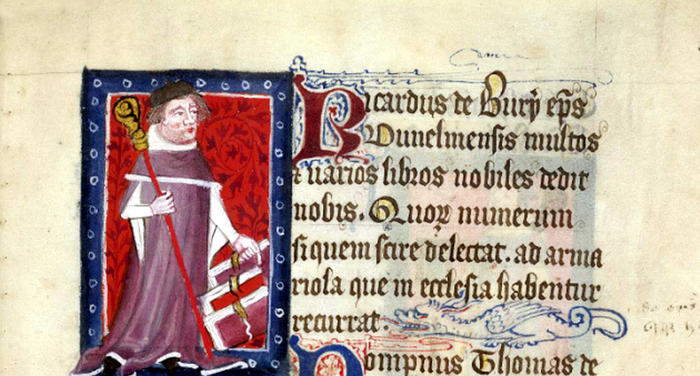 Ricardus de Bury ep̅s
Dunelmensis multos
& uarios libros nobiles dedit
nobis. Quoꝝ numerum
si quem scire delectat. ad arma
riola que in ecclesia habentur
recurrat.
Dompnus Thomas de